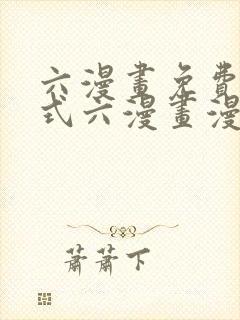 六漫畫免費
式六漫畫漫
蕭蕭下